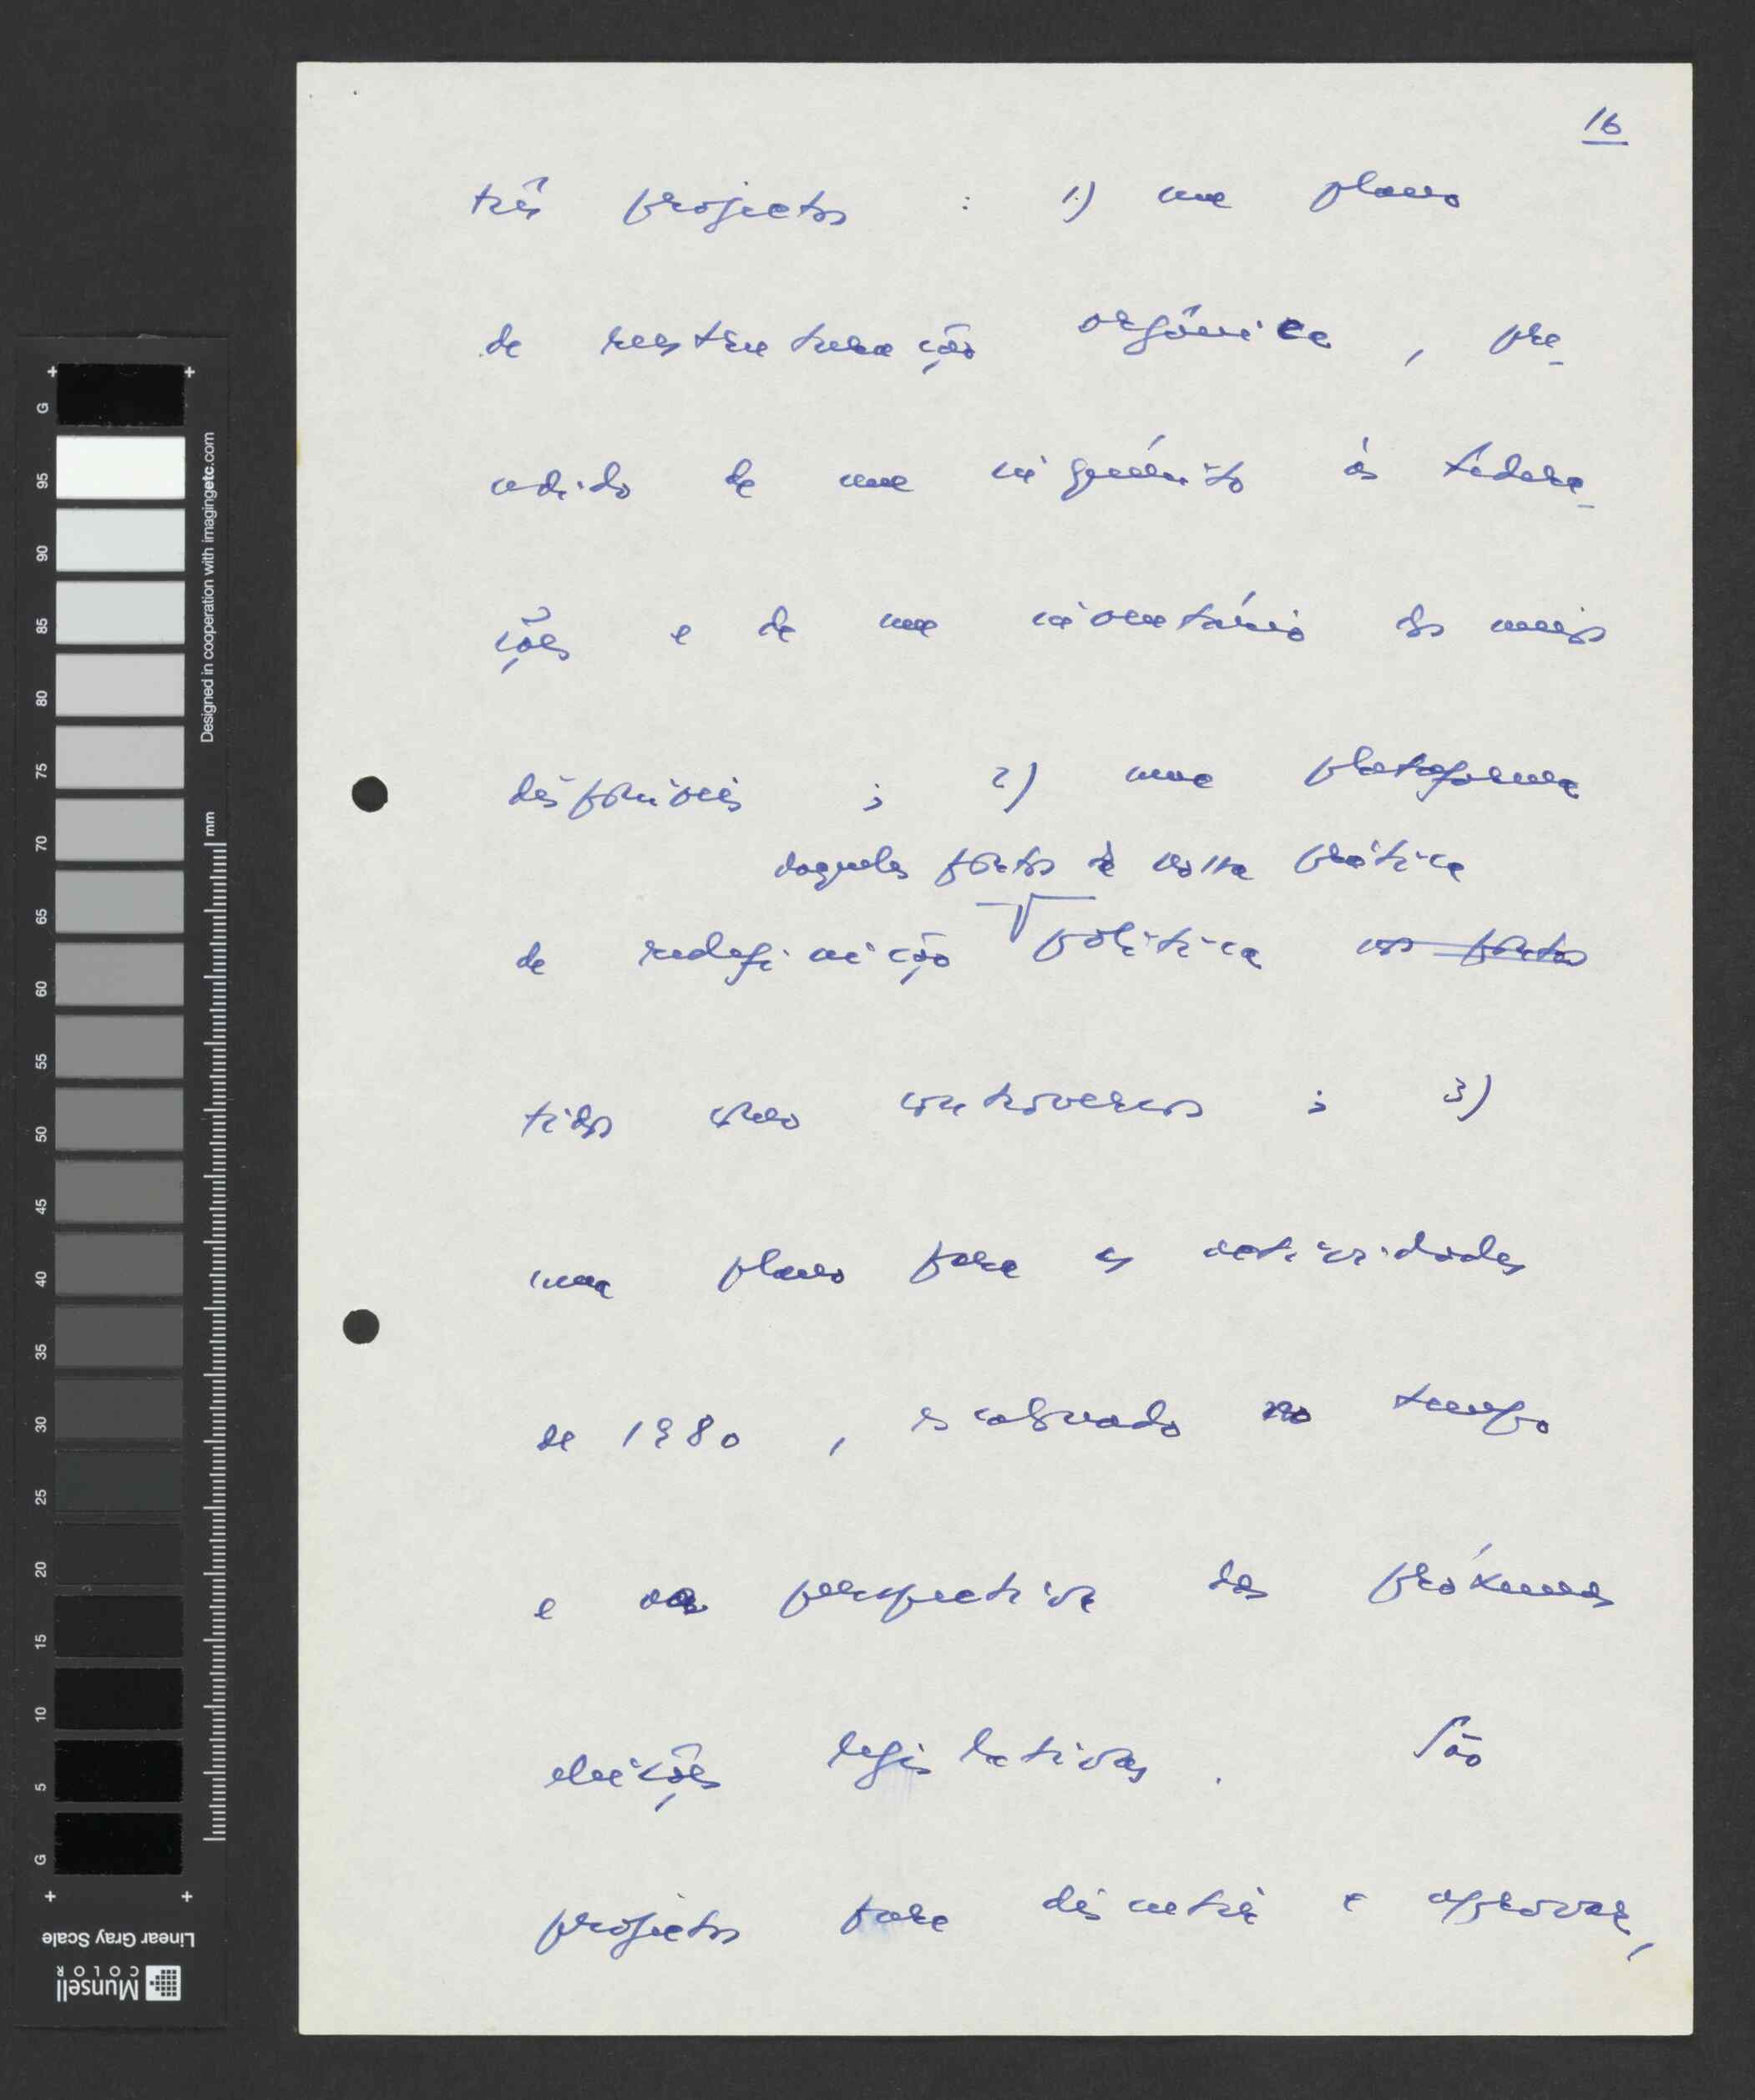 16
três projectos : 1) um plano
de reestruturação orgânica , pre_
cedido de um inquérito às federa_
ções e de um inventário dos meios
disponíveis ; 2) uma plataforma
daqueles pontos da nossa prática
de redefinição política nos pontos
tidos como controversos ; 3)
um plano para as actividades
de 1980 , escalonado no tempo
e na perspectiva das próximas
eleições legislativas . São
projectos para discutir e aprovar,
G 95 90 85 80 75 70 65 60 55 50 45 40 35 30 25 20 15 10 5 G
Designed in cooperation with imagingetc.com
mm
Linear Gray Scale
Munsell
COLOR